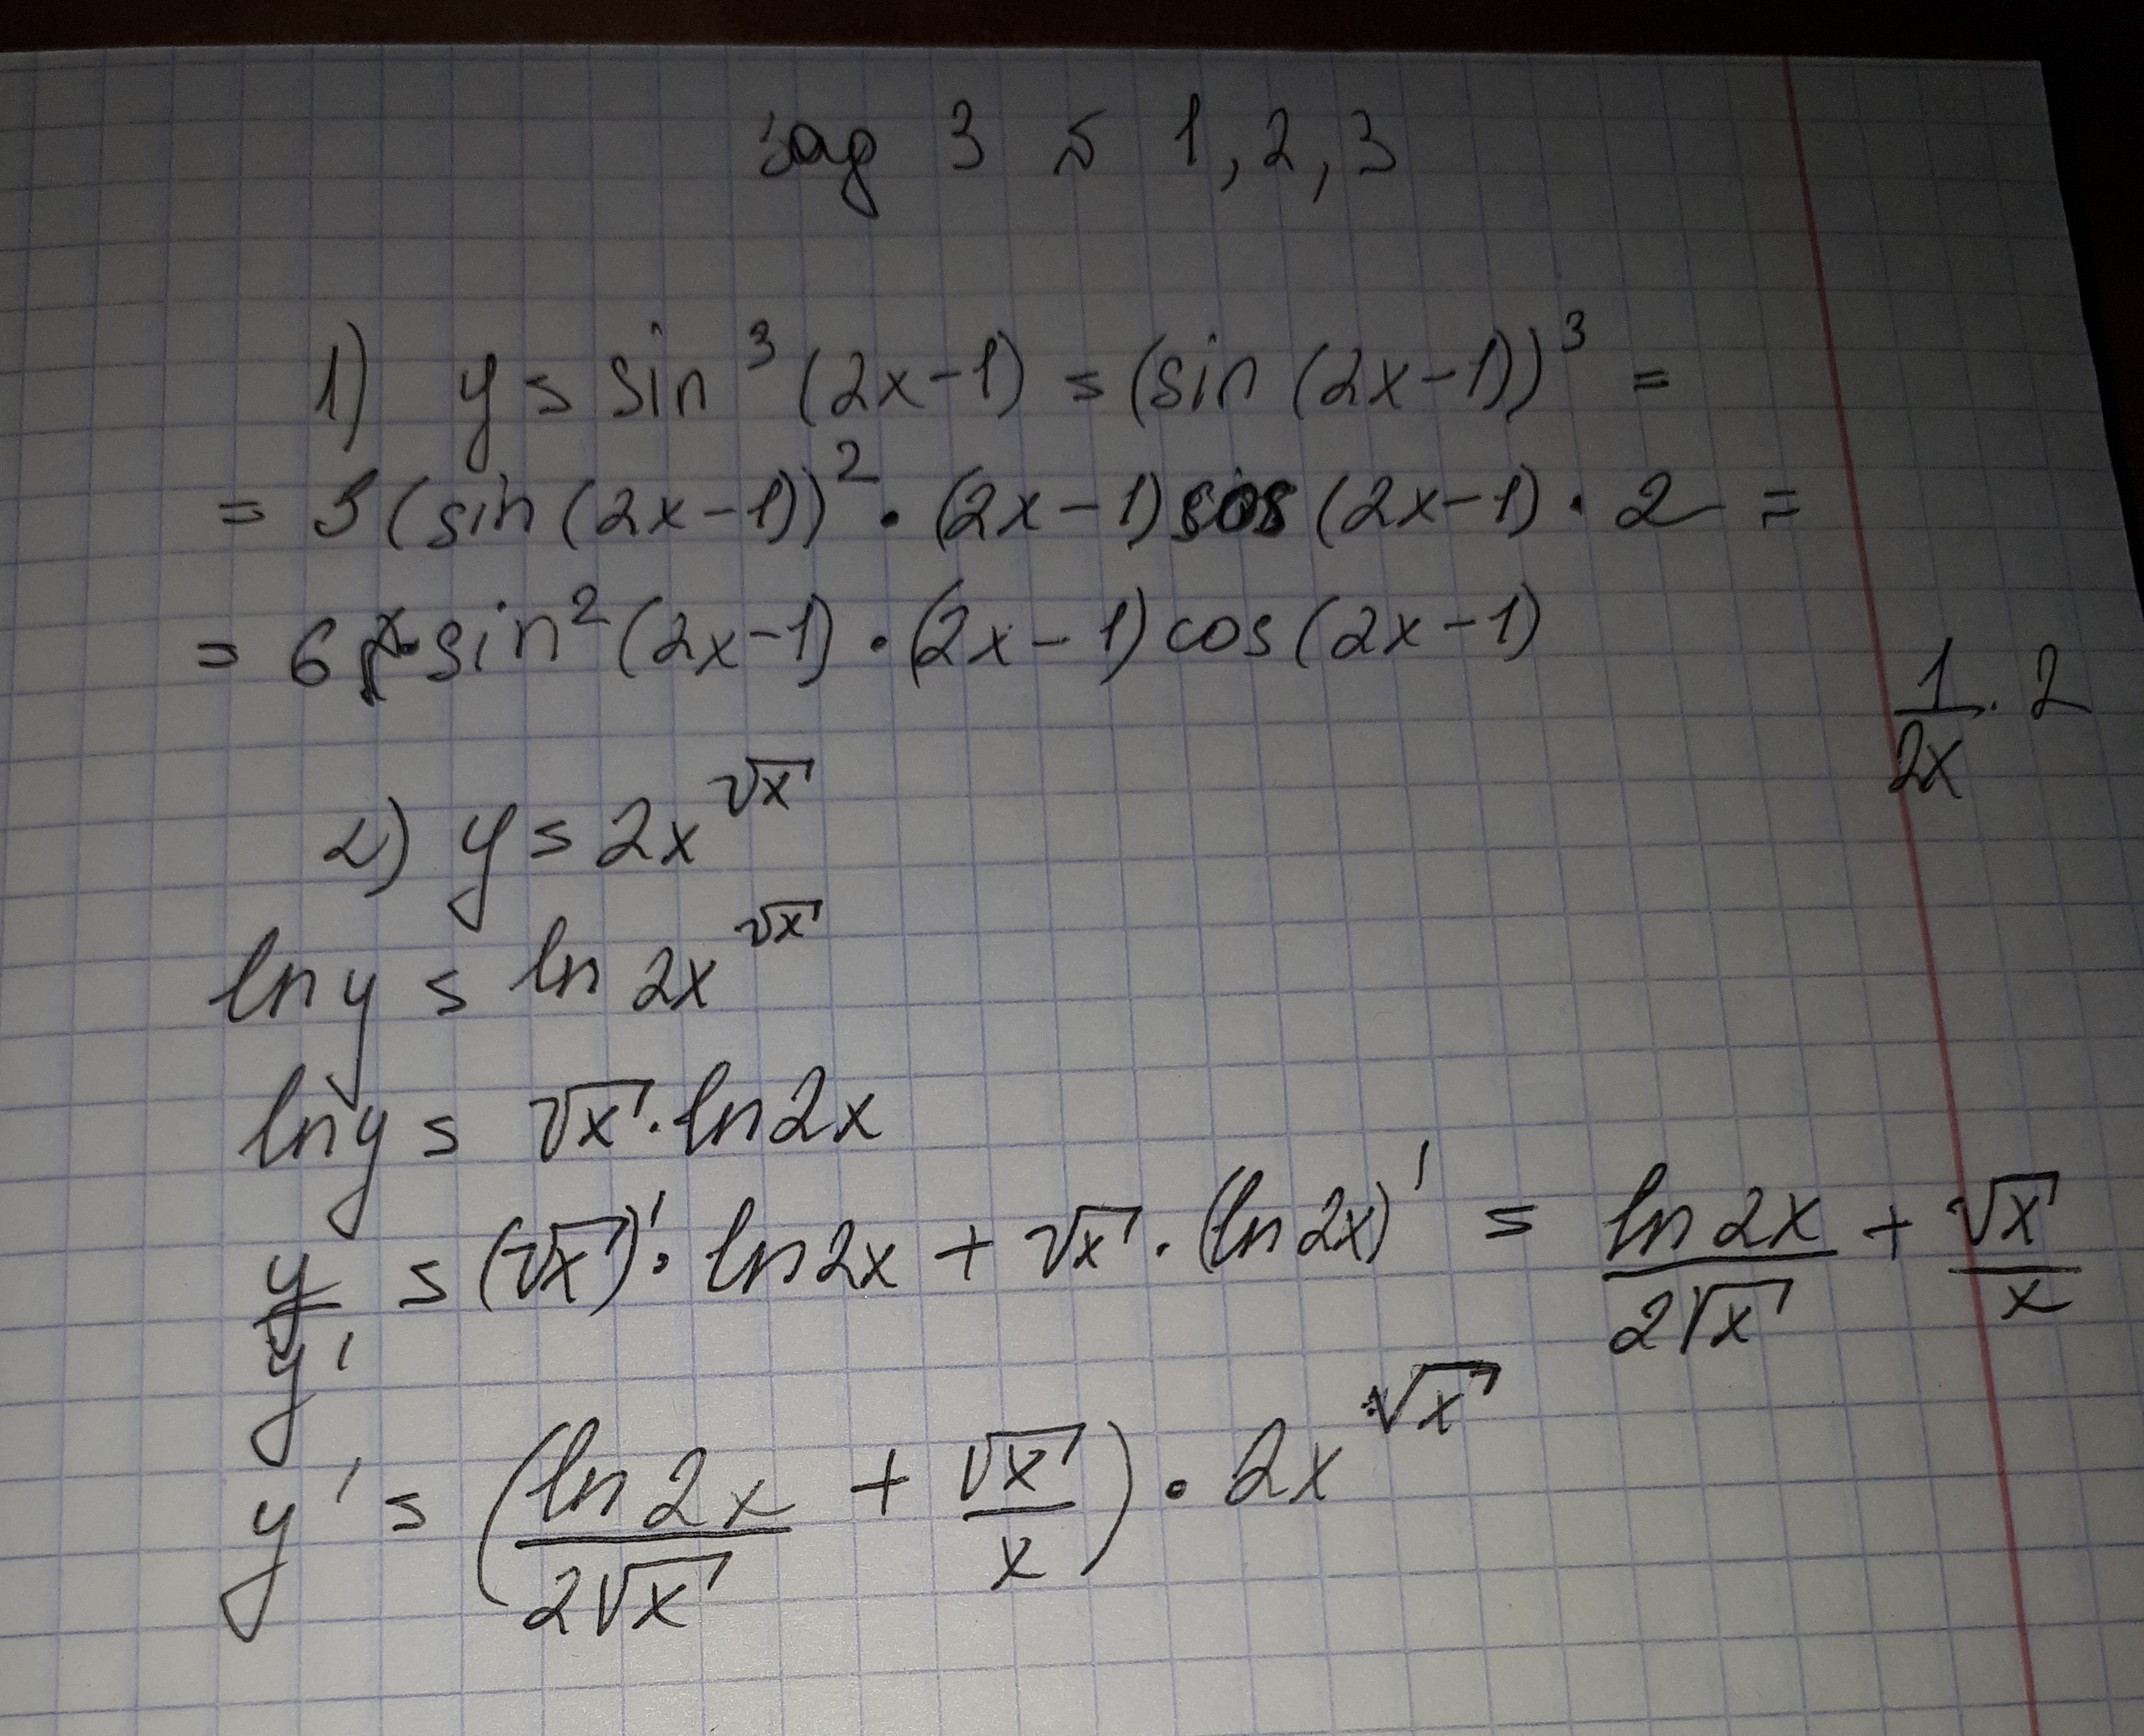 зад 3 № 1, 2, 3
1) y = sin³ (2x-1) = (sin (2x-1))³ =
= 3 (sin (2x-1))² · (2x-1) cos (2x-1) · 2 =
= 6 sin² (2x-1) · (2x-1) cos (2x-1)
1/2x · 2
2) y = 2x^√x
ln y = ln 2x^√x
ln y = √x · ln 2x
y/y' = (√x)' · ln 2x + √x · (ln 2x)' = ln 2x/2√x + √x/x
y' = (ln 2x/2√x + √x/x) · 2x^√x